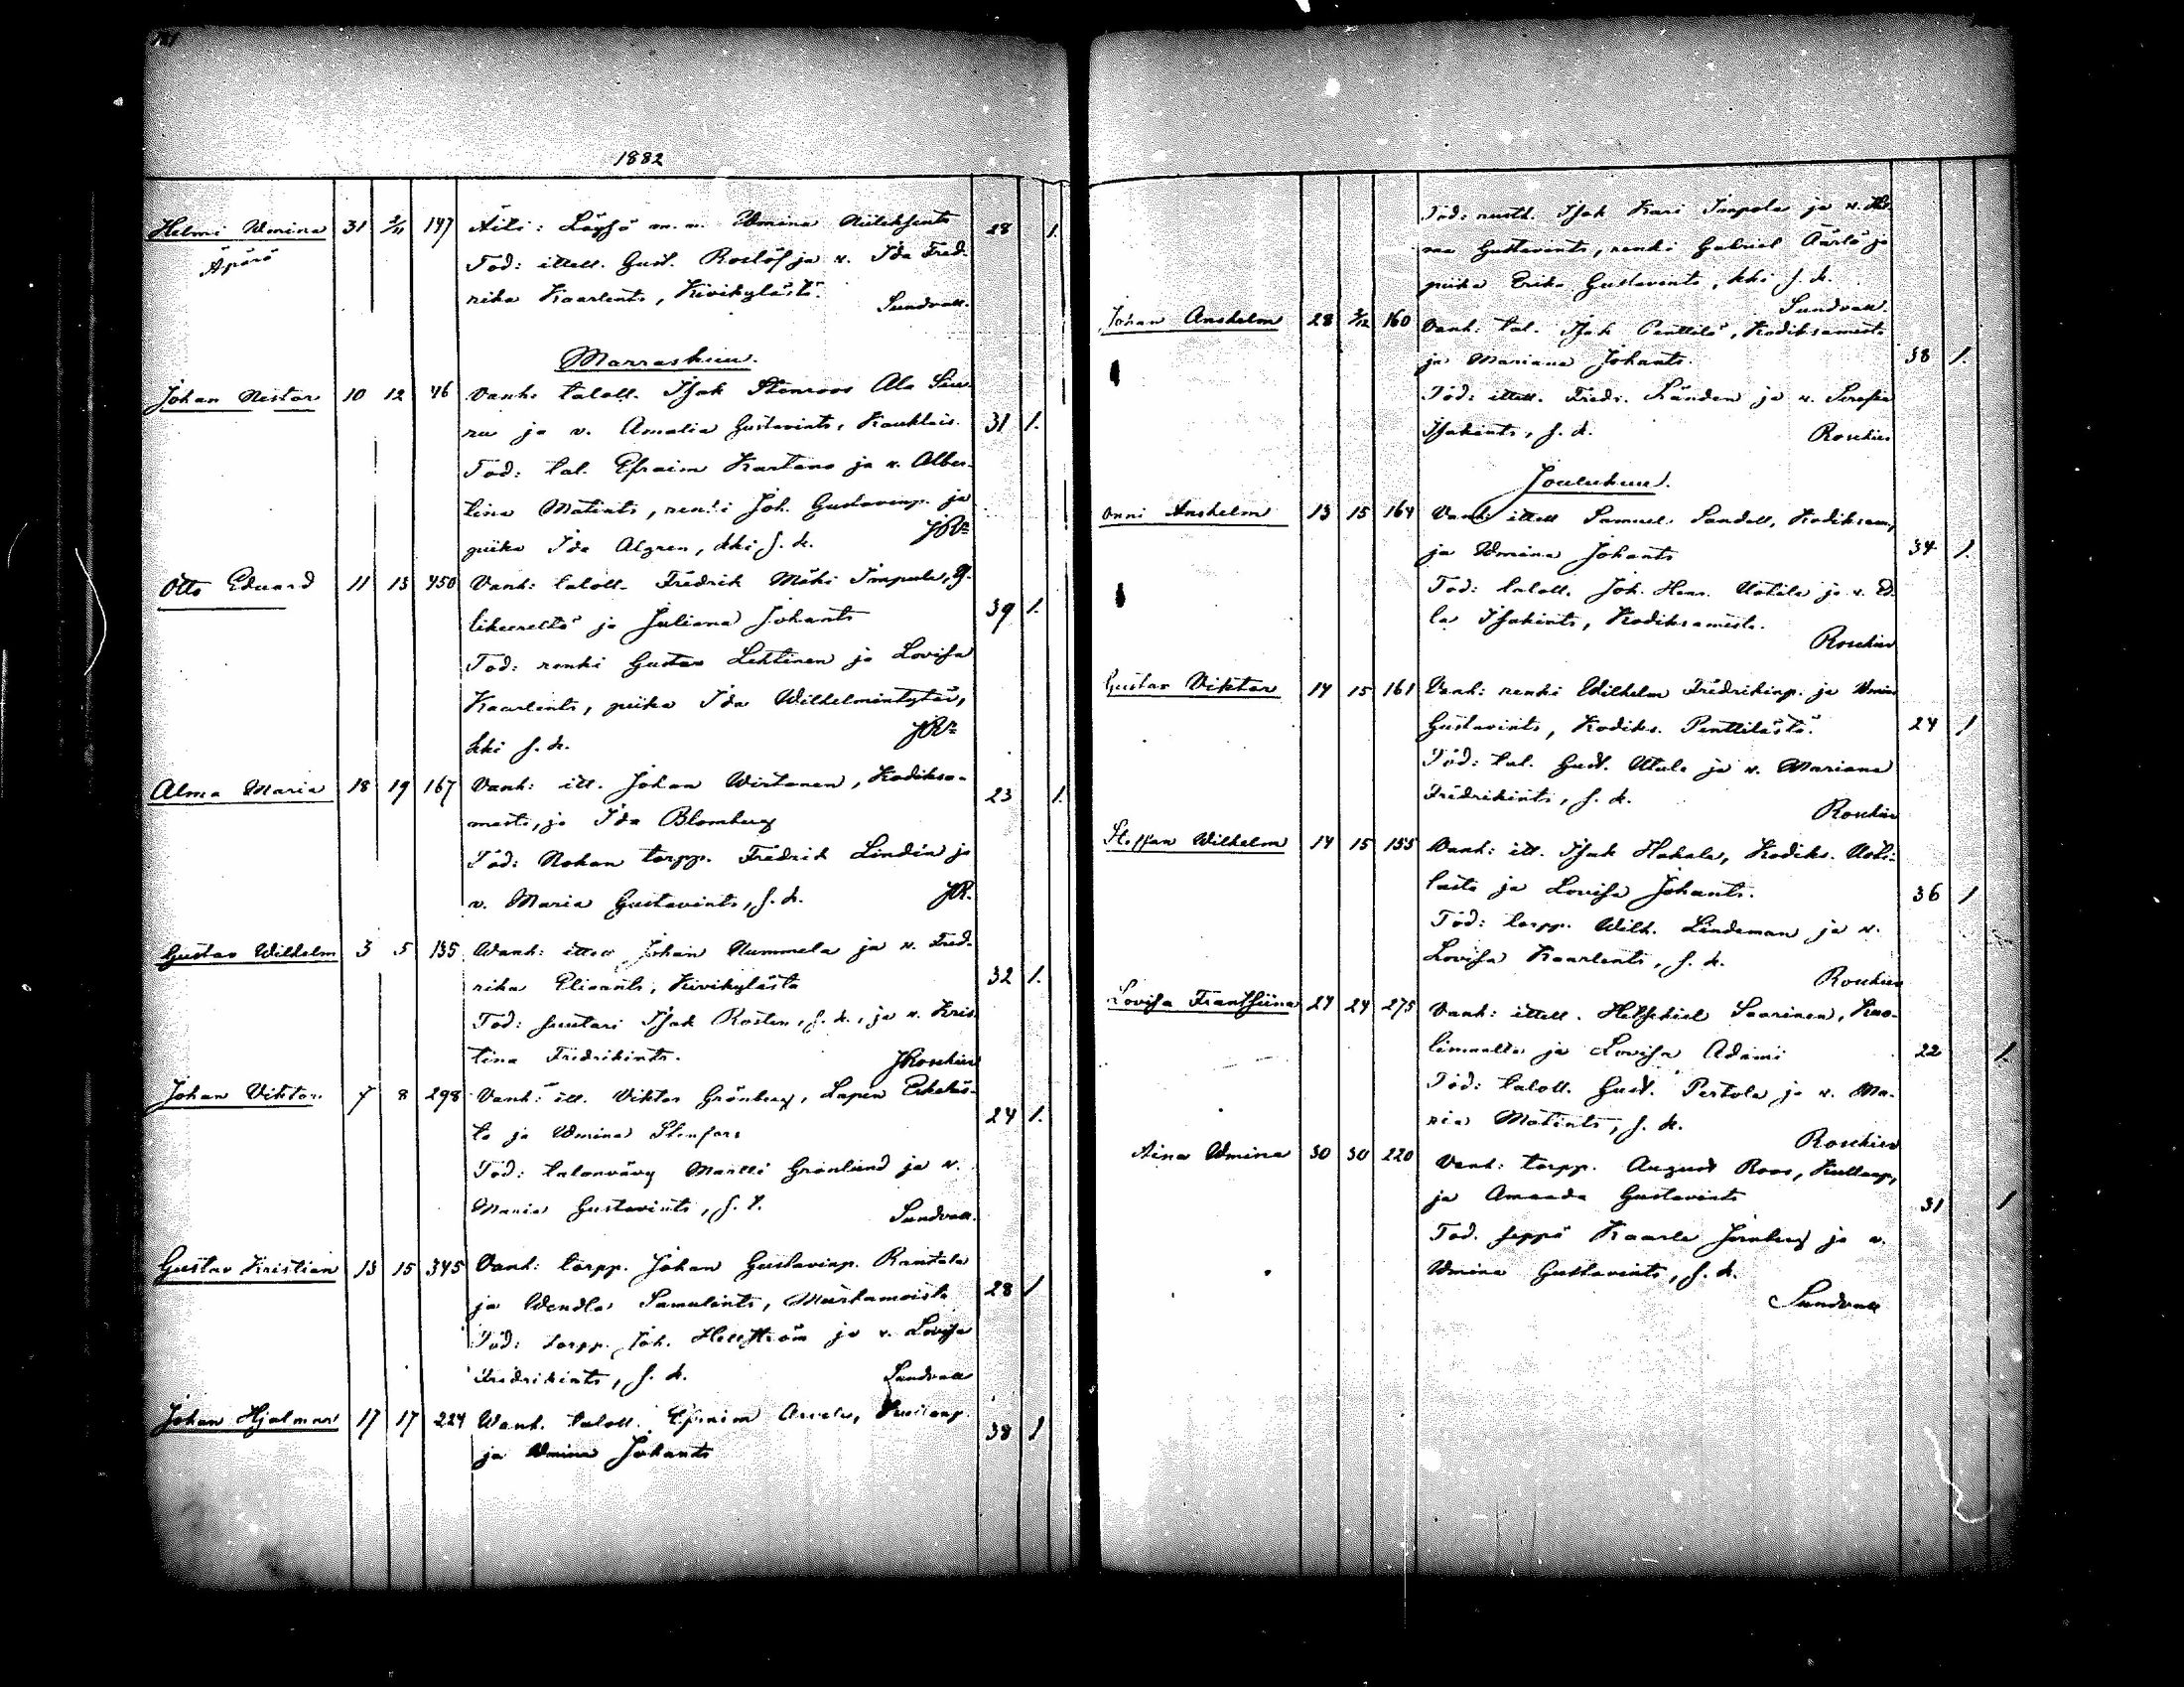 1882
Helmi Wmina 31 2/11 147 Äiti: Löysä m. n. Wmina Aüleksents 28 1.
Äpärä
Tod: ittell. Gust. Roslöf ja v. Ida Fred-
rika Kaarlents, Kivikylästä.
Sundvall.
Marraskuu.
Johan Nestor 10 12 46 Vanh. taloll. Isak Stenroos Ala Siu-
ru ja v. Amalia Gustavints, Kauklais. 31 1.
Tod: tal. Efraim Kartano ja v. Alber-
tina Matints, renki Joh. Gustavinp. ja
piika Ida Algren, kki s. k.
Otto Eduard 11 13 450 Vanh: taloll. Fredrik Mäki Impula, Y-
likeereltä ja Juliana Johants 39 1.
Tod: renki Gustav Lehtinen ja Lovisa
Kaarlents, piika Ida Wilhelmintytär,
kki s. k.
Alma Maria 18 19 167 Vanh: itt. Johan Wirtanen, Kodiksa- 23 1.
mesta, ja Ida Blomberg
Tod: Nohan torpp. Fredrik Lindén ja
v. Maria Gustavints, s. k. JR.
Gustav Wilhelm 3 5 135 Wanh: ittell Johan Nummela ja v. Fred-
rika Eliants, Kivikylästä 32 1.
Tod: suutari Isak Rosten, s. k., ja v. Kris-
tina Fredrikints. JRoschier
Johan Viktor 7 8 298 Vanh: itt. Viktor Grönberg, Lapin Erkkäs-
ta ja Wmina Stenfors 24 1.
Tod: talonvävy Martti Grönlund ja v.
Maria Gustavints, s. k. Sundvall.
Gustav Kristian 13 15 345 Vanh: torpp. Johan Gustavinp. Rantala
ja Wendla Samulints, 28 1
Tod: torpp. Joh. Hellström ja v. Lovisa
Fredrikints, s. k. Sundvall
Johan Hjalmar 17 17 224 Wanh. taloll. Efraim
ja Wmina Johants 38 1
Tod: rustt. Isak Kari Impola ja v.
Gustavints, renki Gabriel Äärlä ja
piika Erika Gustavints, kki s. k.
Sundvall.
Johan Anshelm 28 2/12 160 Vanh: tal. Isak Penttilä, Kodiksamista
ja Mariana Johants. 38 1.
Tod: ittell. Fredr. Ränden ja v. Serafia
Isakints, s. k. Roschier
Joulukuu.
Onni Anshelm 13 15 164 Vanh: ittell Samuel Sandell, Kodiksam,
ja Wmina Johants 34 1.
Tod: taloll. Joh. Henr. Uotila ja v. Ed-
la Isakints, Kodiksamista.
Roschier
Gustav Viktor 14 15 161 Vanh: renki Wilhelm Fredrikinp. ja Wmin
Gustavints, Kodiks. Penttilästä. 24 1
Tod: tal. Gust. Utula ja v. Mariana
Fredrikints, s. k. Roschier
Steffan Wilhelm 14 15 155 Vanh: itt. Isak Hakala, Kodiks. Uoti-
lasta ja Lovisa Johants. 36 1
Tod: torpp. Wilh. Lindeman ja v.
Lovisa Kaarlents, s. k.
Roschier
Lovisa Fransiina 24 24 275 Vanh: ittell. Hetsekiel Saarinen, Kuo-
limaalta ja Lovisa Adami 22 1.
Tod: taloll. Gust. Pertola ja v. Ma-
ria Matints, s. k.
Roschier
Aina Wmina 30 30 220 Vanh: torpp. August Roos, Kullanp,
ja Amanda Gustavints 31 1
Tod. seppä Kaarle Jernberg ja v.
Wmina Gustavints, s. k.
Sundvall